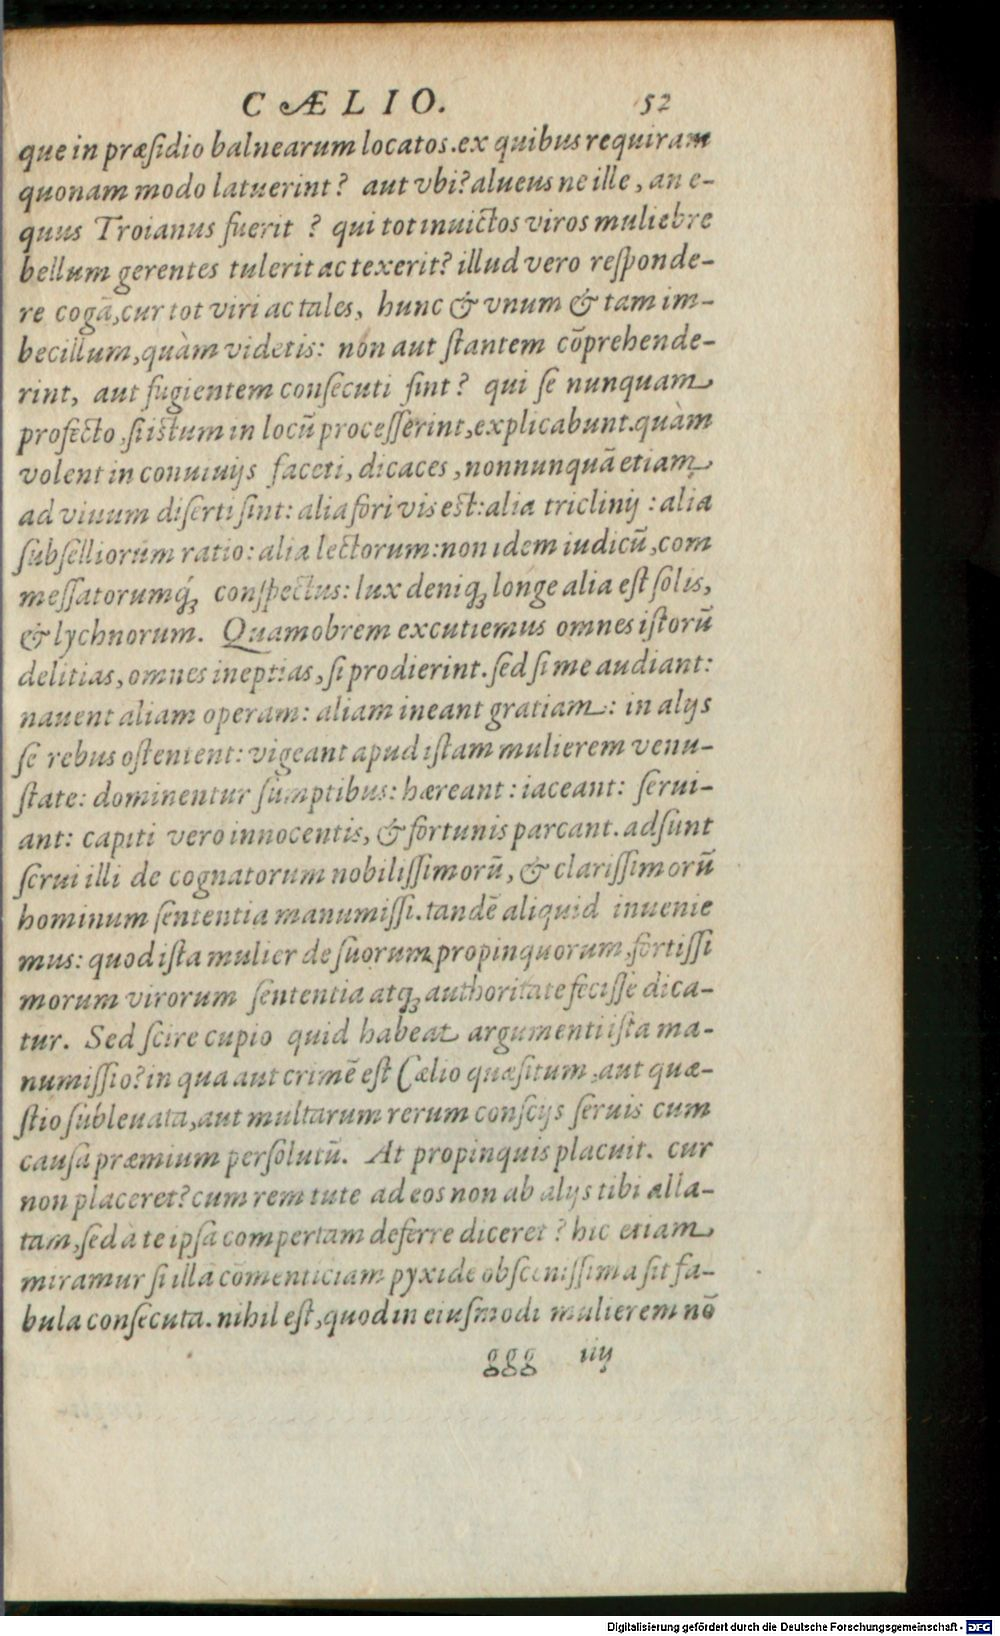 CÆLIO. 52
que in præsidio balnearum locatos. ex quibus requiram
quonam modo latuerint? aut vbi? alueus ne ille, an e-
quus Troianus fuerit ? qui tot inuictos viros muliebre
bellum gerentes tulerit ac texerit? illud vero responde-
re cogã, cur tot viri ac tales, hunc & vnum & tam im-
becillum, quàm videtis: non aut stantem cõprehende-
rint, aut fugientem consecuti sint? qui se nunquam
profecto, si istum in locũ processerint, explicabunt. quàm
volent in conuiuijs faceti, dicaces, nonnunquã etiam
ad vinum diserti sint: alia fori vis est: alia triclinij : alia
subselliorum ratio: alia lectorum: non idem iudicũ, com
messatorumq́; conspectus: lux deniq; longe alia est solis,
& lychnorum. Quamobrem excutiemus omnes istorũ
delitias, omnes ineptias, si prodierint. sed si me audiant:
nauent aliam operam: aliam ineant gratiam: in alijs
se rebus ostentent: vigeant apud istam mulierem venu-
state: dominentur sumptibus: hæreant: iaceant: serui-
ant: capiti vero innocentis, & fortunis parcant. adsunt
serui illi de cognatorum nobilissimorũ, & clarissimorũ
hominum sententia manumissi. tandẽ aliquid inuenie
mus: quod ista mulier de suorum propinquorum, fortissi
morum virorum sententia atq; authoritate fecisse dica-
tur. Sed scire cupio quid habeat argumenti ista ma-
numissio? in qua aut crimẽ est Cælio quæsitum, aut quæ-
stio subleuata, aut multarum rerum conscijs seruis cum
causa præmium persolutũ. At propinquis placuit. cur
non placeret? cum rem tute ad eos non ab alijs tibi alla-
tam, sed à te ipsa compertam deferre diceret ? hic etiam
miramur si illã cõmenticiam pyxide obscenissima sit fa-
bula consecuta. nihil est, quod in eiusmodi mulierem nõ
ggg iiij
Digitalisierung gefördert durch die Deutsche Forschungsgemeinschaft - DFG